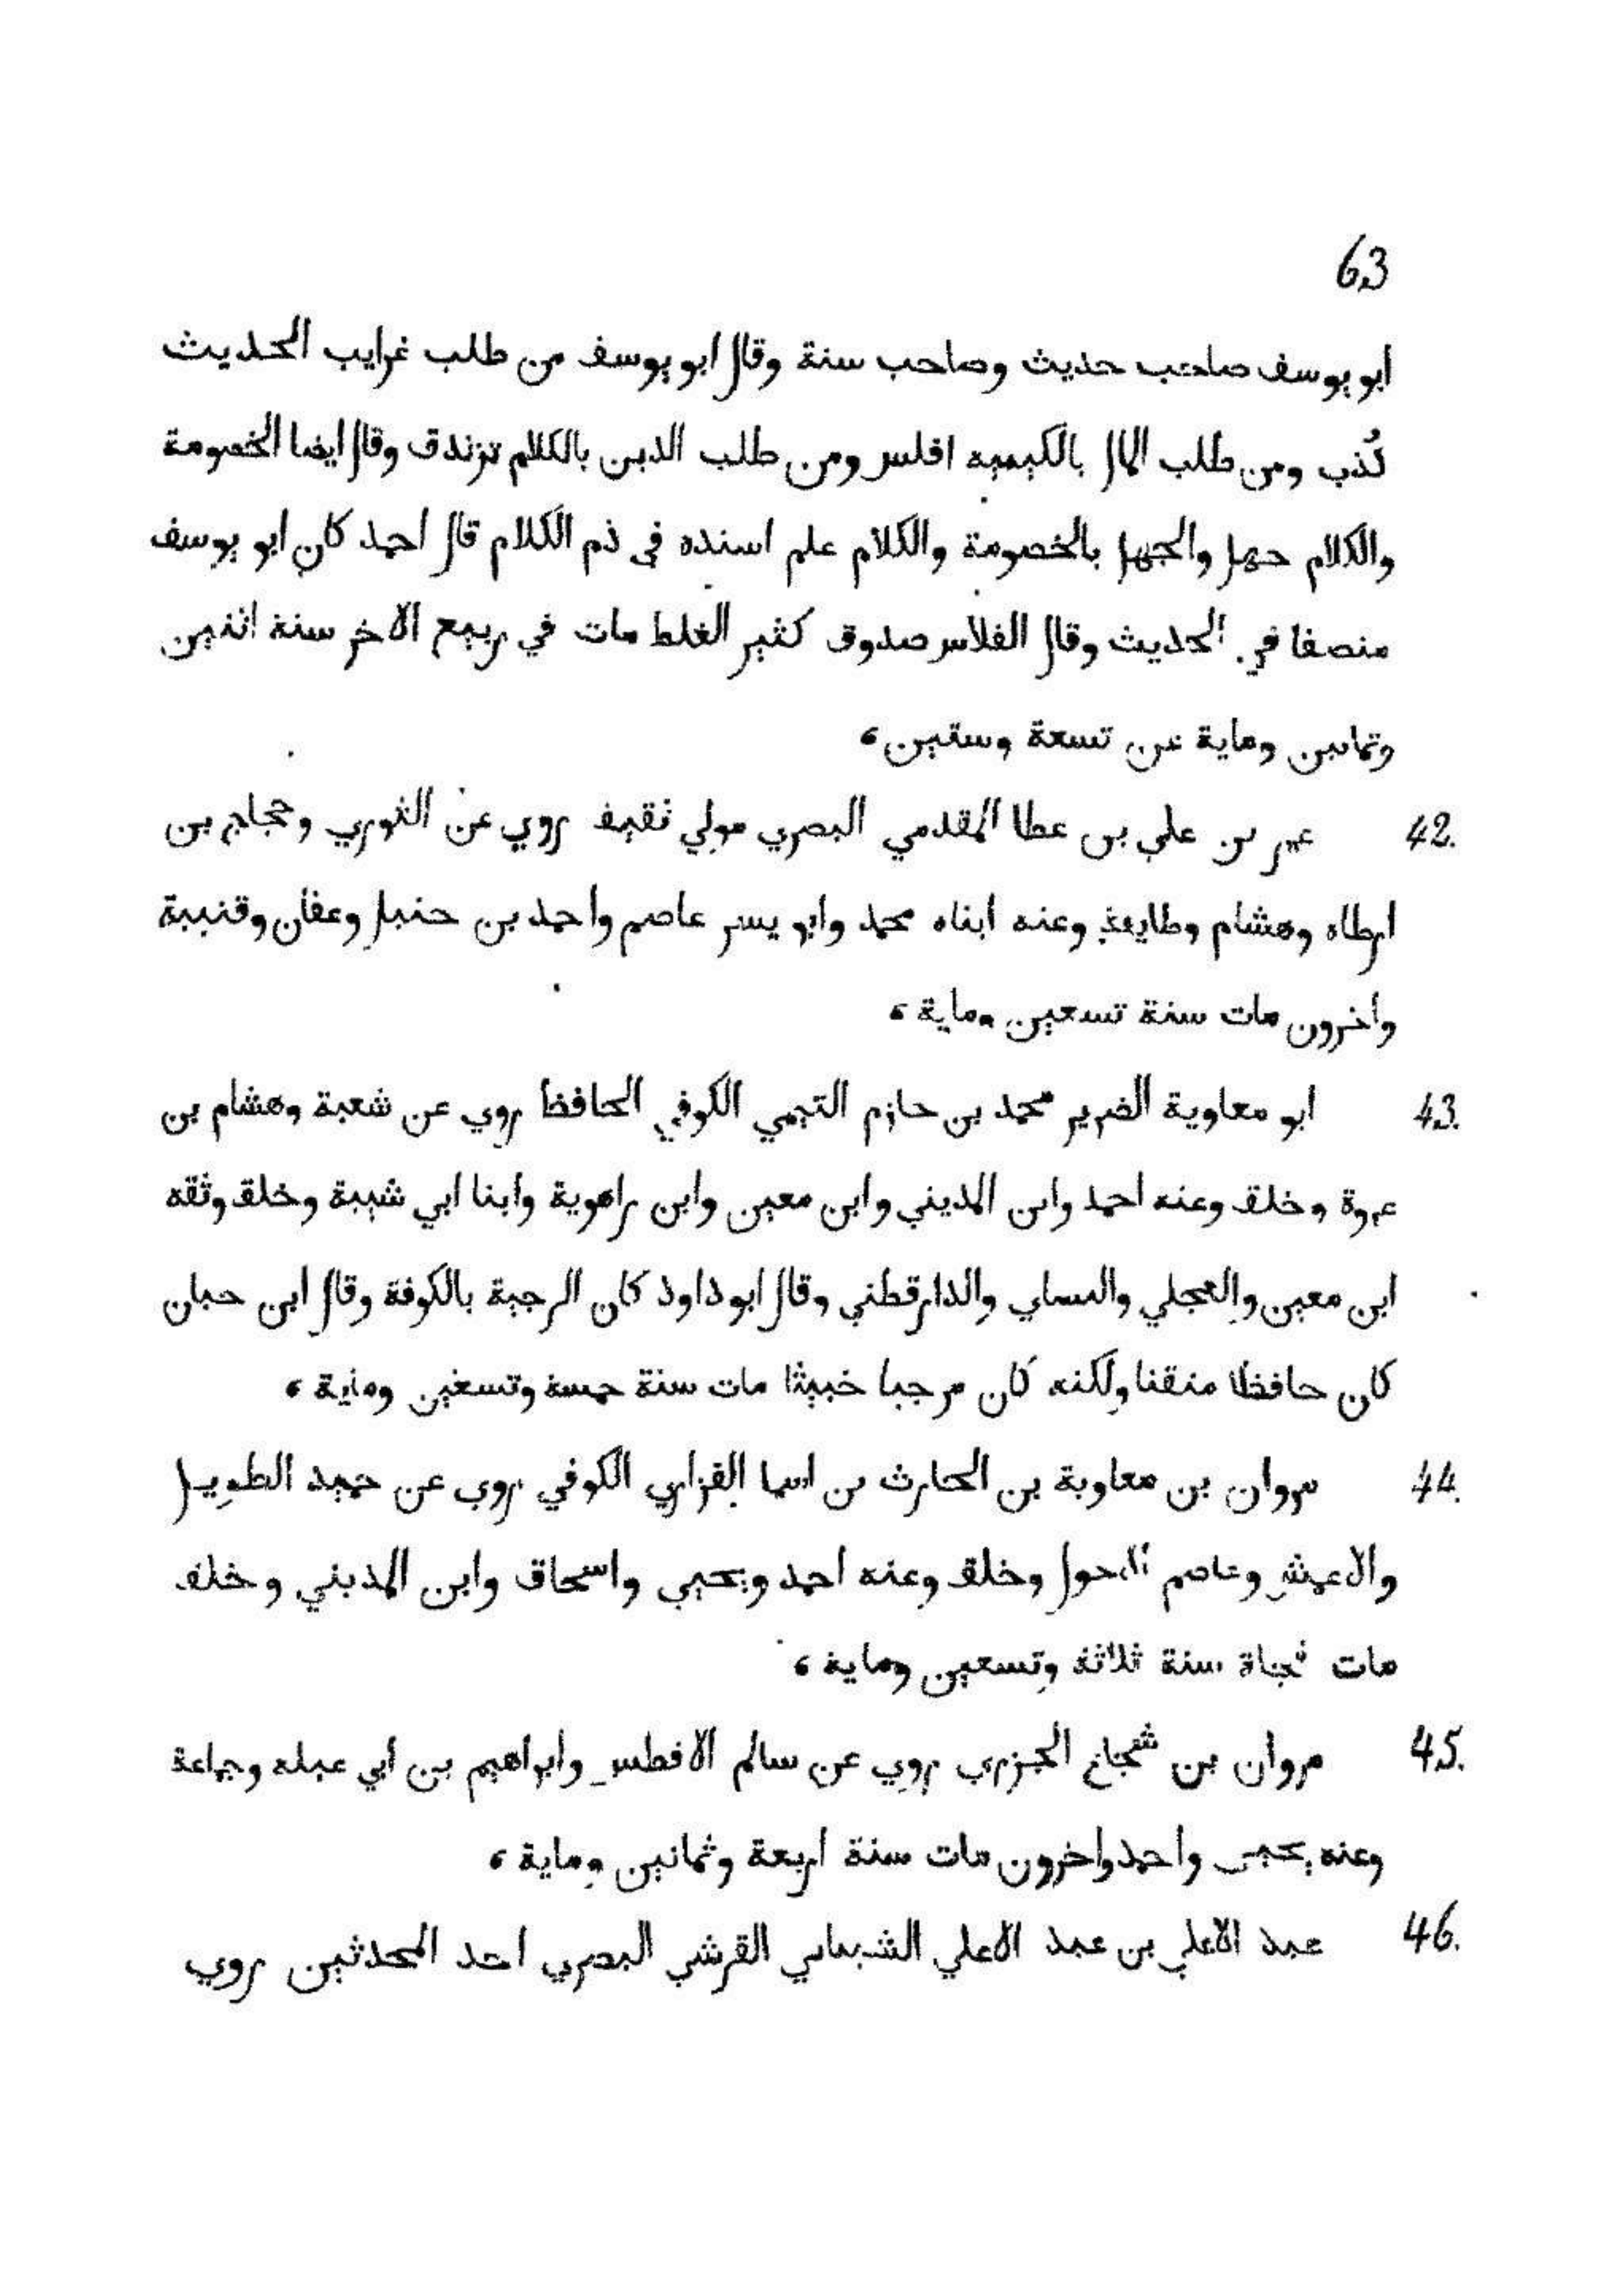 63
ابو يوسف صاحب حديث وصاحب سنة وقال ابو يوسف من طلب غرايب الحديث
كُذب ومن طلب المال بالكيميه افلس ومن طلب الدين بالكلام تزندق وقال ايضا الخصومة
والكلام جهل والجهل بالخصومة والكلام علم اسنده في ذم الكلام قال احمد كان ابو يوسف
منصفا في الحديث وقال الفلاس صدوق كثير الغلط مات في ربيع الاخر سنة اثنين
وثمانين وماية عن تسعة وستين،
42. عمر بن علي بن عطا المقدمي البصري مولي ثقيف روي عن الثوري وحجاج بن
ارطاه وهشام وطايفة وعنه ابناه محمد وابو يسر عاصم واحمد بن حنبل وعفان وقتيبة
واخرون مات سنة تسعين وماية،
43. ابو معاوية الضرير محمد بن حازم التيمي الكوفي الحافظ روي عن شعبة وهشام بن
عروة وخلق وعنه احمد وابن المديني وابن معين وابن راهوية وابنا ابي شيبة وخلق وثقه
ابن معين والعجلي والنساي والدارقطني وقال ابو داود كان المرجية بالكوفة وقال ابن حبان
كان حافظا متقنا ولكنه كان مرجيا خبيثا مات سنة خمسة وتسعين وماية،
44. مروان بن معاوية بن الحارث بن اسما الفزاري الكوفي روي عن حميد الطويل
والاعمش وعاصم الاحول وخلق وعنه احمد ويحيي واسحاق وابن المديني وخلف
مات فجاة سنة ثلاثة وتسعين وماية،
45. مروان بن شجاع الجزري روي عن سالم الافطس وابراهيم بن أبي عبله وجماعة
وعنه يحيى واحمد واخرون مات سنة اربعة وثمانين وماية،
46. عبد الاعلي بن عبد الاعلي الشيباني القرشي البصري احد المحدثين روي